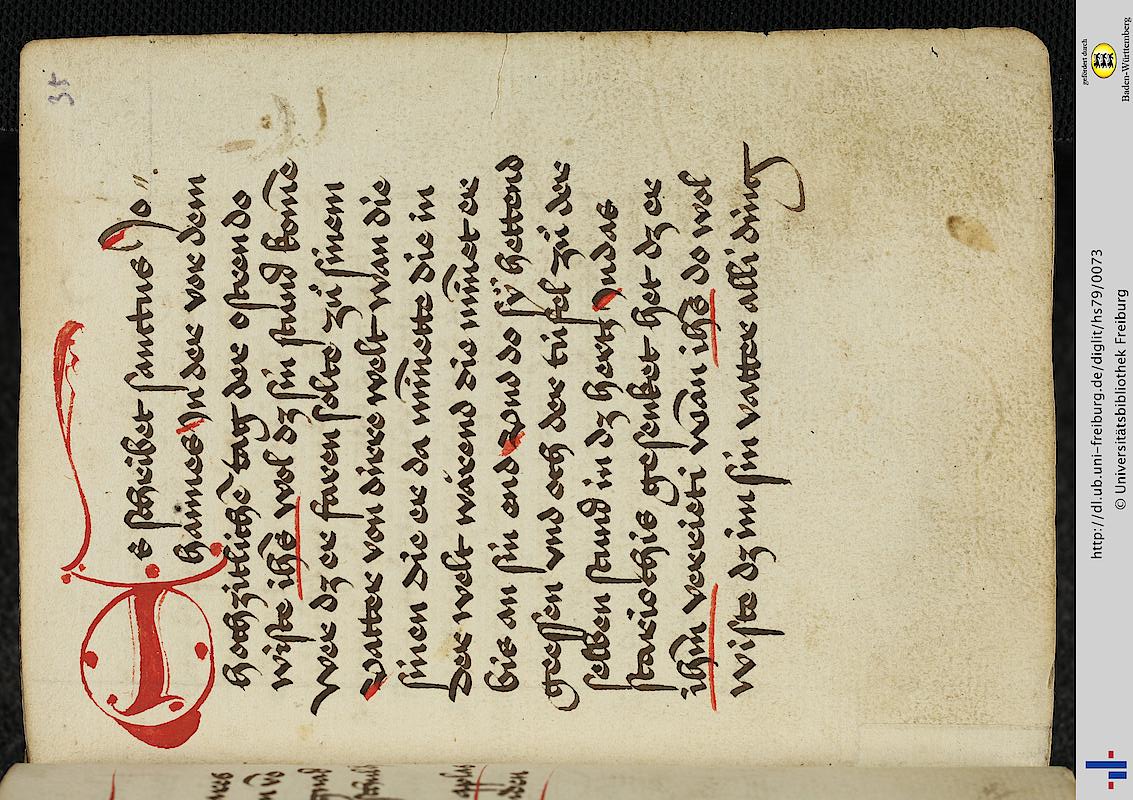 35
Es schribet sanctus Jo//
hannes Jn der vor dem
hochzitliche tag der ostren do
wiste ihs wol dz sin stund kome
wer dz er faren solte zů sinem
vatter von dirre welt wan die
sinen die er da minnette die in
der welt wärend die minnet er
bis an sin end vnd do sÿ hettend
geessen vnd och der tüfel zů der
selben stund in dz hertz Judas
stariothis gesenket het dz er
ihm verrieti wan ihs do wol
wiste dz im sin vatter alli ding
http://dl.ub.uni-freiburg.de/diglit/hs79/0073
© Universitätsbibliothek Freiburg
gefördert durch
Baden-Württemberg